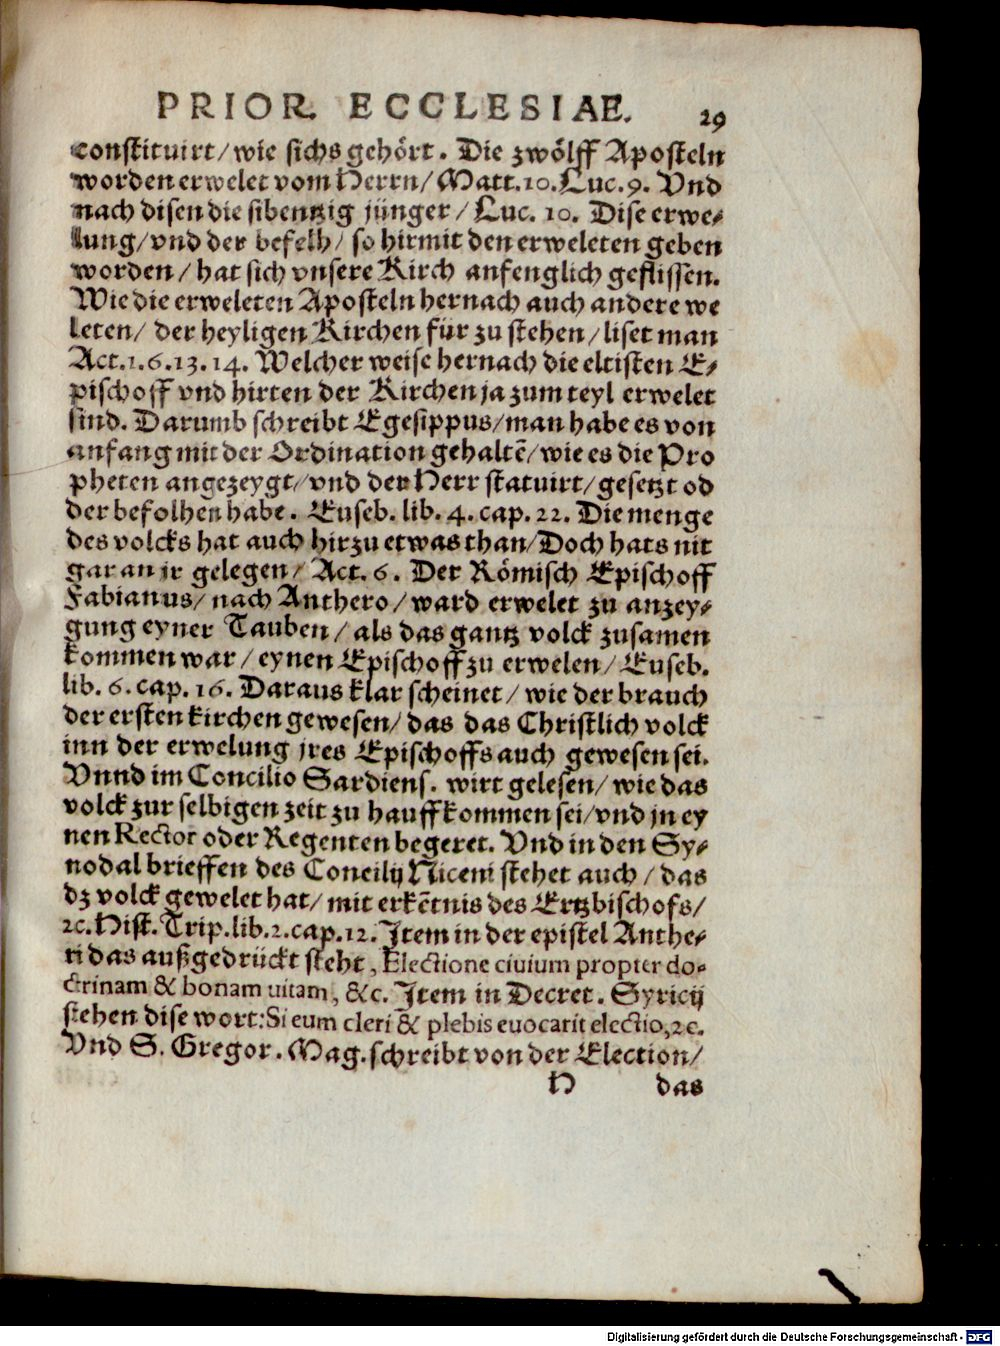 PRIOR. ECCLESIAE. 29
constituirt/ wie sichs gehört. Die zwölff Aposteln
worden erwelet vom Herrn/ Matt.10. Luc.9. Vnd
nach disen die sibentzig jünger/ Luc. 10. Dise erwe-
lung/ vnd der befelh/ so hirmit den erweleten geben
worden/ hat sich vnsere Kirch anfenglich geflissen.
Wie die erweleten Aposteln hernach auch andere we
leten/ der heyligen Kirchen für zu stehen/ liset man
Act.1.6.13.14. Welcher weise hernach die eltisten E-
pischoff vnd hirten der Kirchen ja zum teyl erwelet
sind. Darumb schreibt Egesippus/ man habe es von
anfang mit der Ordination gehaltē/ wie es die Pro
pheten angezeygt/ vnd der Herr statuirt/ gesetzt od
der befolhen habe. Euseb. lib. 4. cap. 22. Die menge
des volcks hat auch hirzu etwas than/ Doch hats nit
gar an jr gelegen/ Act. 6. Der Römisch Epischoff
Fabianus/ nach Anthero/ ward erwelet zu anzey-
gung eyner Tauben/ als das gantz volck zusamen
kommen war/ eynen Epischoff zu erwelen/ Euseb.
lib. 6. cap. 16. Daraus klar scheinet/ wie der brauch
der ersten kirchen gewesen/ das das Christlich volck
inn der erwelung jres Epischoffs auch gewesen sei.
Vnnd im Concilio Sardiens. wirt gelesen/ wie das
volck zur selbigen zeit zu hauff kommen sei/ vnd jn ey
nen Rector oder Regenten begeret. Vnd in den Sy-
nodal brieffen des Concilij Niceni stehet auch/ das
dz volck gewelet hat/ mit erkētnis des Ertzbischofs/
2c. Hist. Trip. lib. 2. cap. 12. Jtem in der epistel Anthe-
ri das außgedrückt steht, Electione ciuium propter do-
ctrinam & bonam uitam, &c. Jtem in Decret. Syricij
stehen dise wort: Si eum cleri & plebis euocarit electio, 2c.
Vnd S. Gregor. Mag. schreibt von der Election/
H das
Digitalisierung gefördert durch die Deutsche Forschungsgemeinschaft - DFG